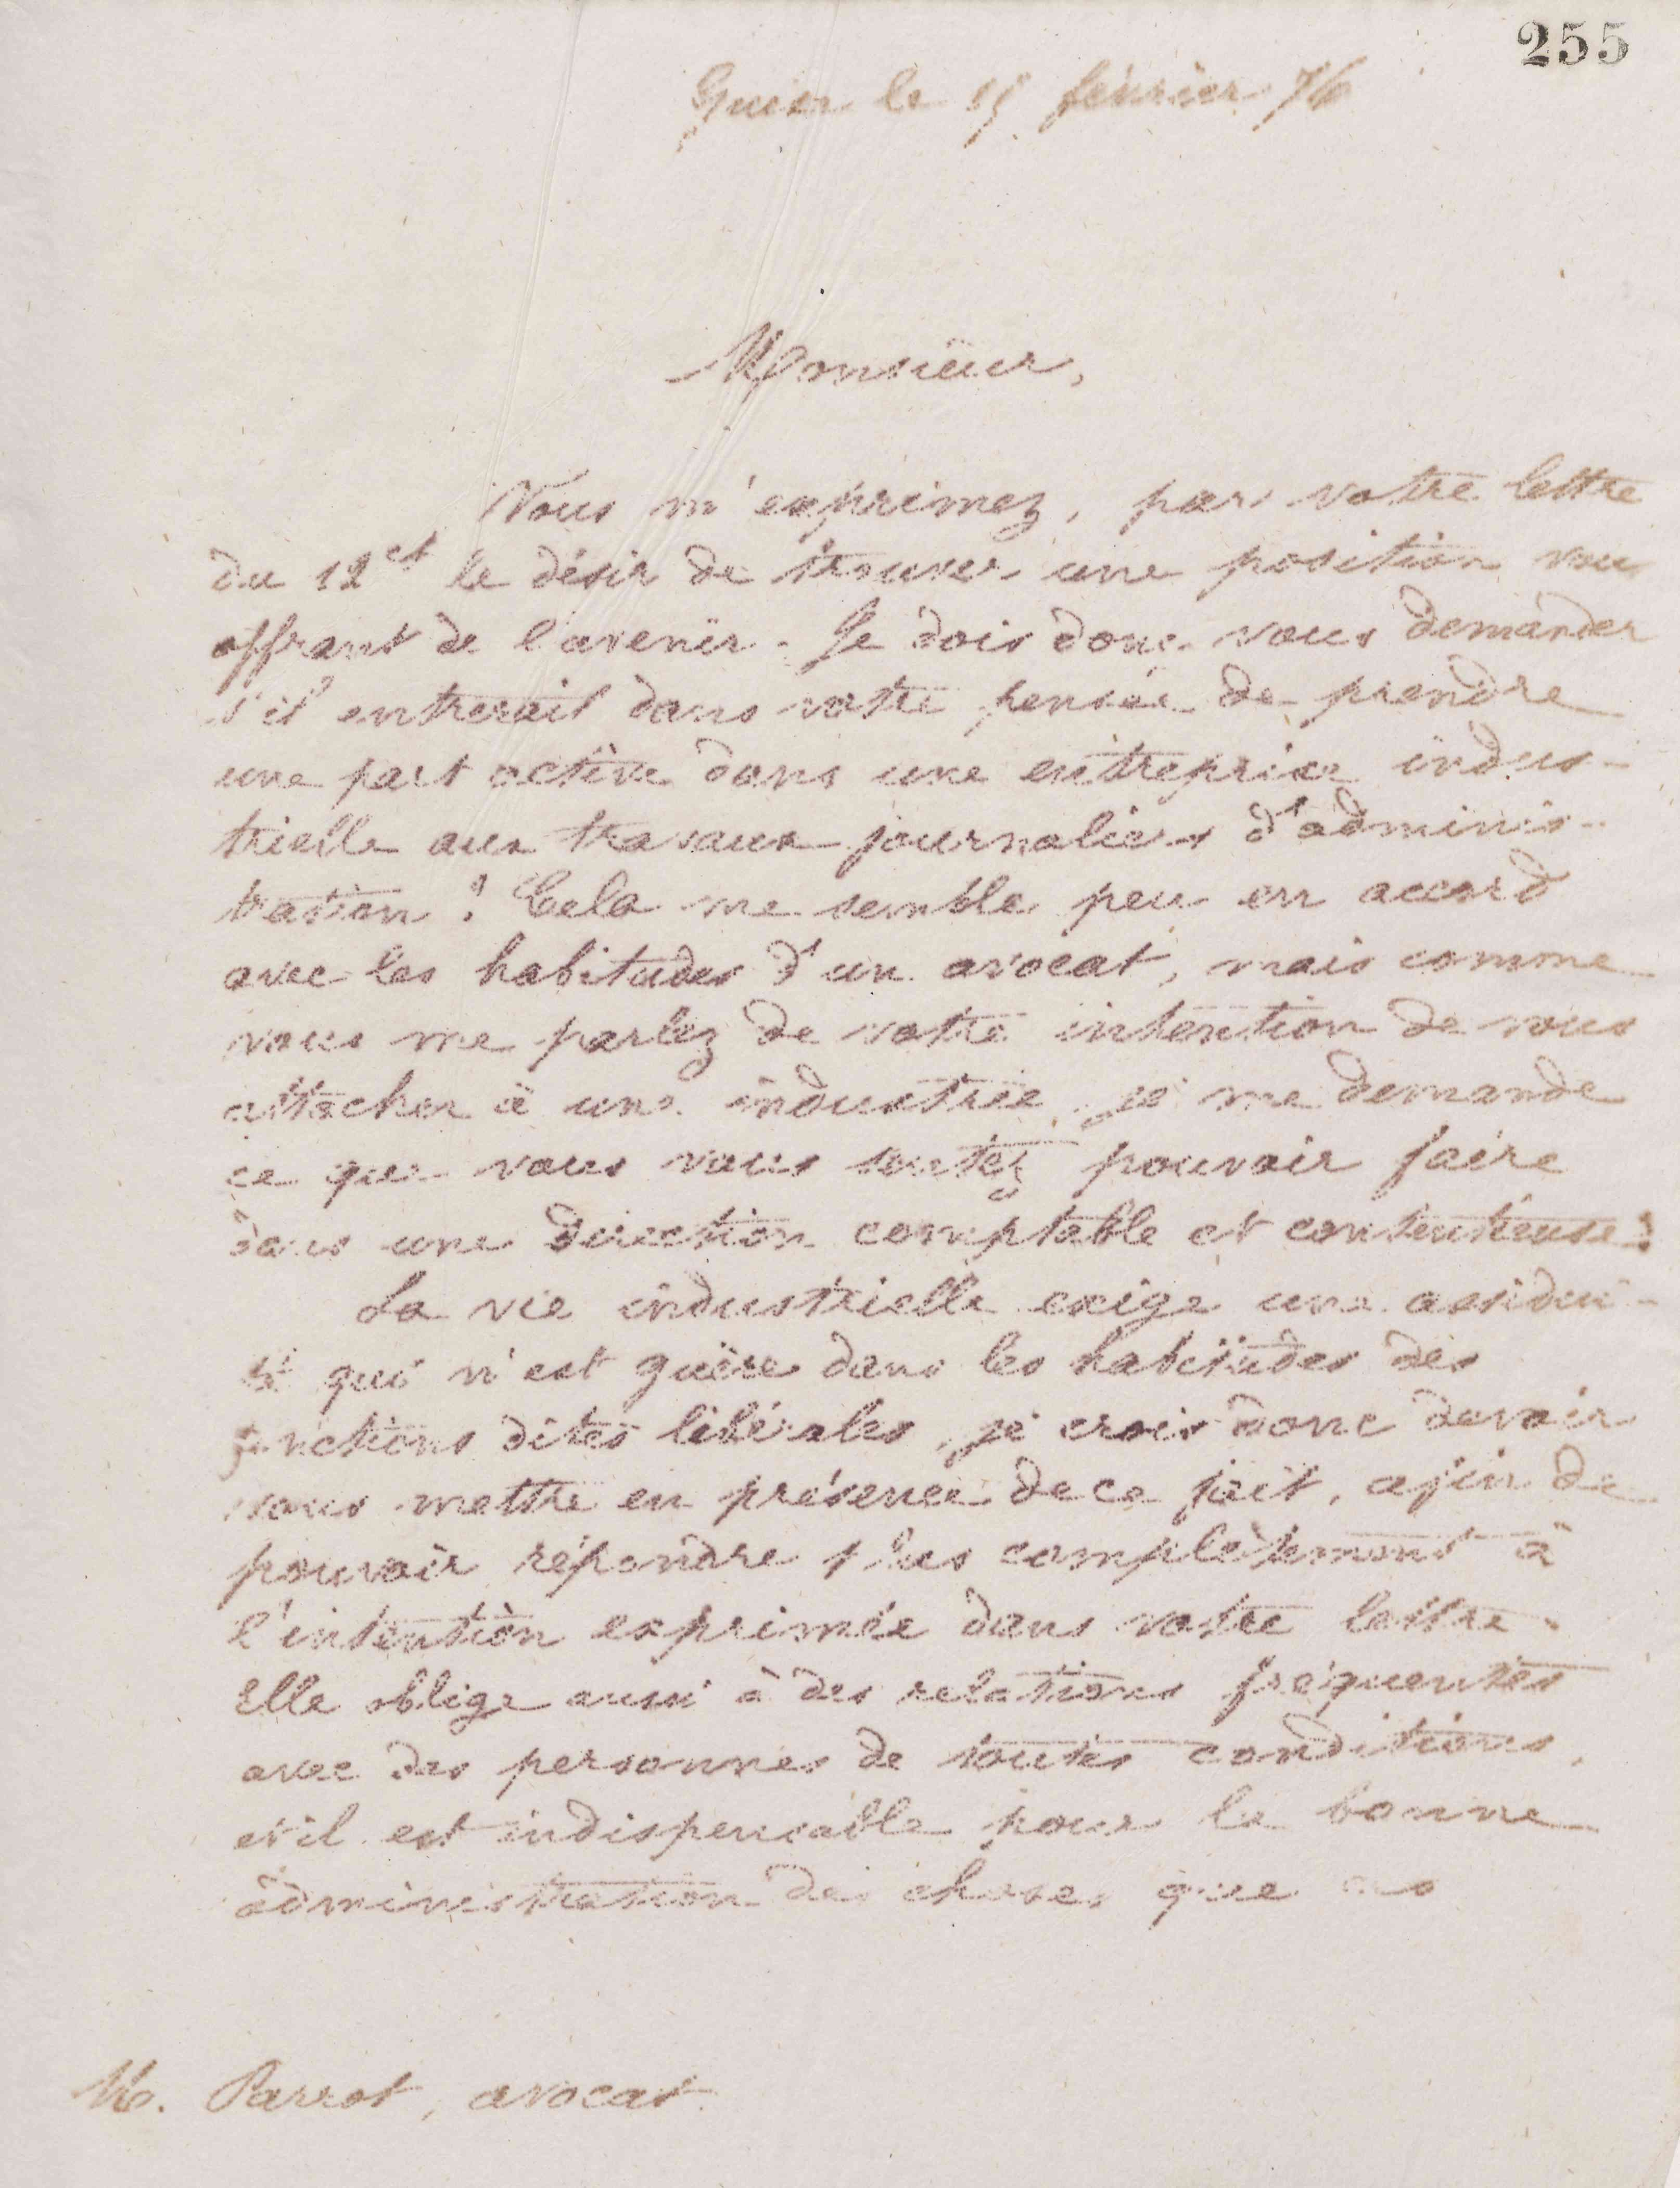 255
Guise le 15 février 76
Monsieur,
Vous m'exprimez, par votre lettre
du 12 ct le désir de trouver une position vous
offrant de l'avenir. Je dois donc vous demander
s'il entrerait dans votre pensée de prendre
une part active dans une entreprise indus-
trielle aux travaux journaliers d'adminis-
tration ? Cela me semble peu en accord
avec les habitudes d'un avocat, mais comme
vous me parlez de votre intention de vous
attacher à une industrie, je me demande
ce que vous vous sentez pouvoir faire
dans une direction comptable et contentieuse ?
La vie industrielle exige une assidui-
té qui n'est guère dans les habitudes des
fonctions dites libérales, je crois donc devoir
vous mettre en présence de ce fait, afin de
pouvoir répondre plus complètement à
l'intention exprimée dans votre lettre.
Elle oblige aussi à des relations fréquentes
avec des personnes de toutes conditions,
et il est indispensable pour la bonne
administration des choses que ces
M. Parrot, avocat.